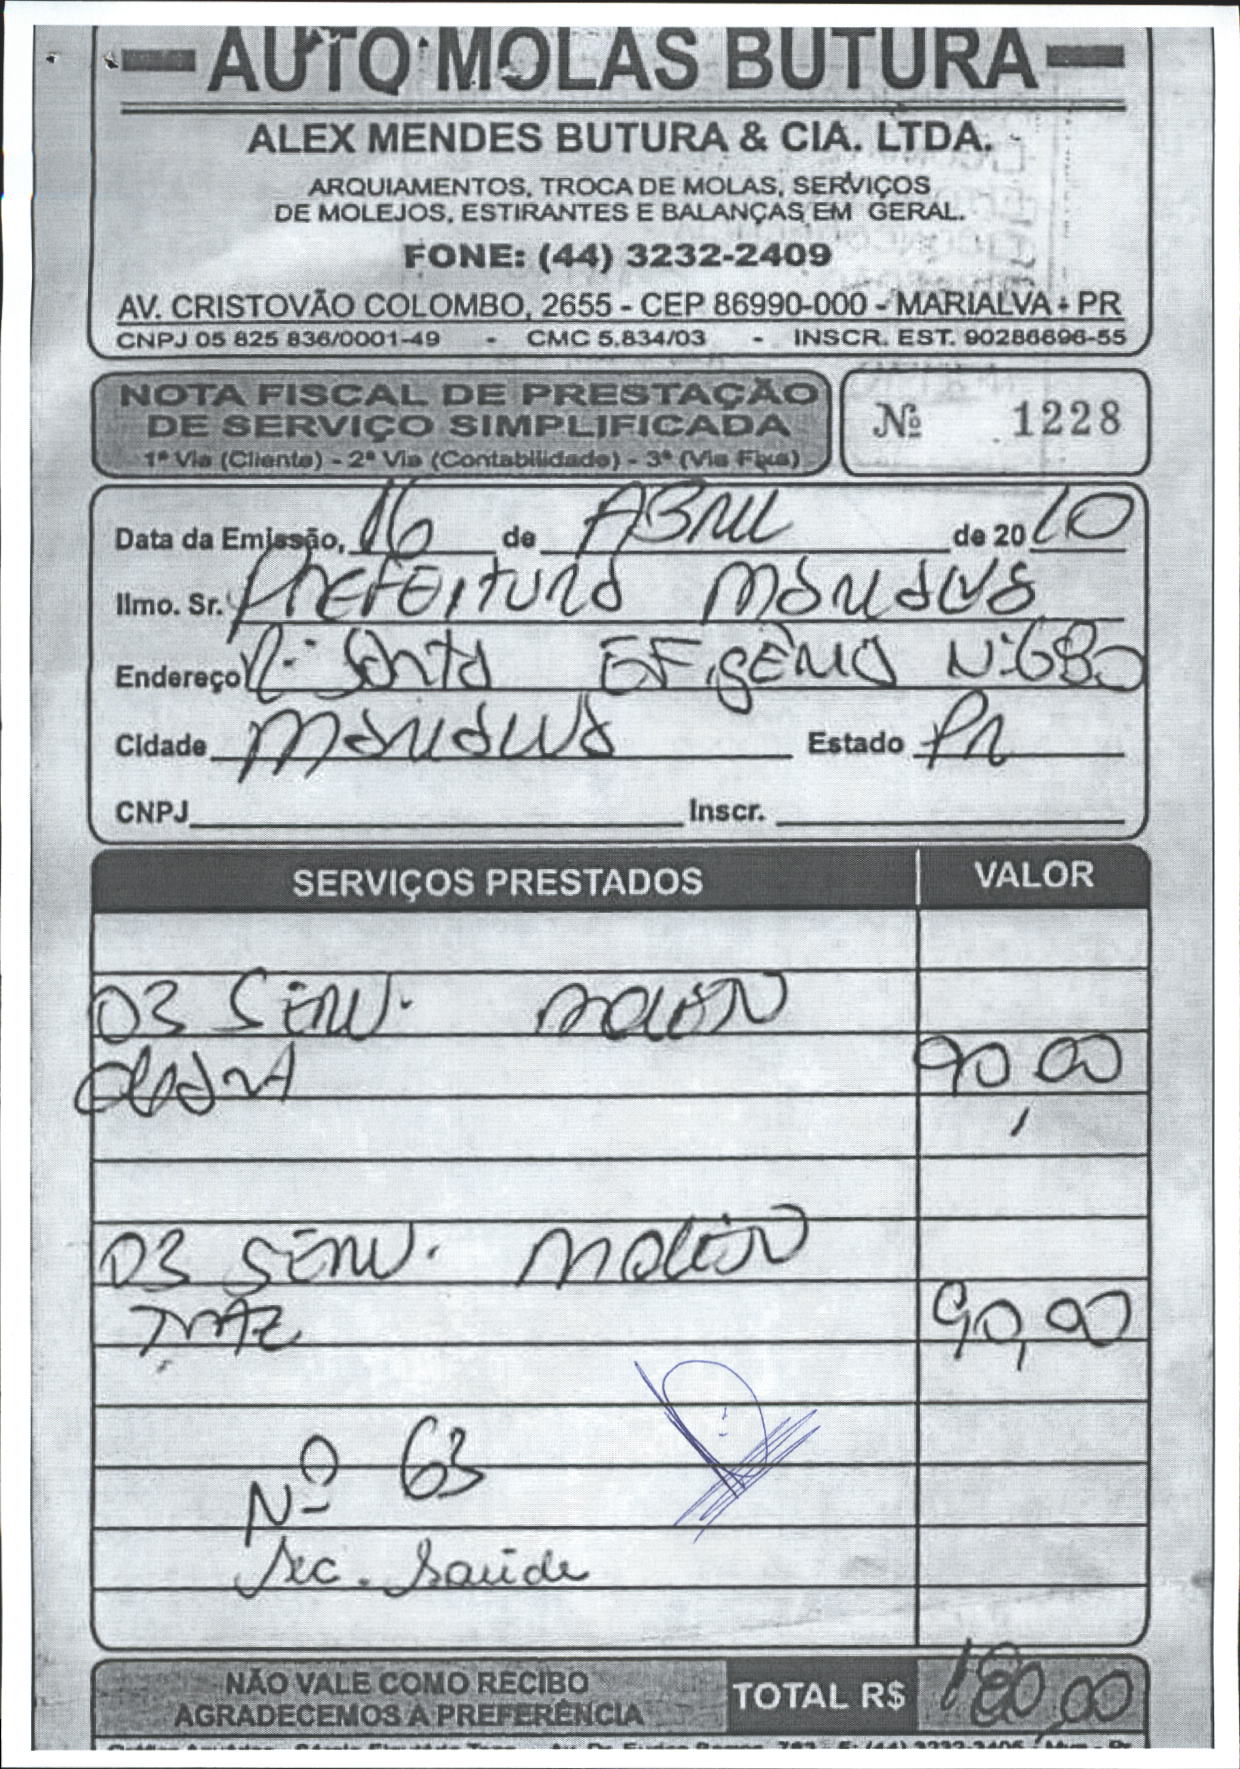 AUTO MOLAS BUTURA
ALEX MENDES BUTURA & CIA. LTDA.
ARQUIAMENTOS, TROCA DE MOLAS, SERVIÇOS
DE MOLEJOS, ESTIRANTES E BALANÇAS EM GERAL.
FONE: (44) 3232-2409
AV. CRISTOVÃO COLOMBO, 2655 - CEP 86990-000 - MARIALVA - PR
CNPJ 05 825 836/0001-49 - CMC 5.834/03 - INSCR. EST. 90286896-55
NOTA FISCAL DE PRESTAÇÃO
DE SERVIÇO SIMPLIFICADA
1ª Via (Cliente) - 2ª Via (Contabilidade) - 3ª (Via Fixa)
Nº 1228
Data da Emissão, 16 de ABRIL de 2010
Ilmo. Sr. PREFEITURA MARIALVA
Endereço R: Santa EFIGÊNIA Nº 680
Cidade MARIALVA Estado PR
CNPJ Inscr.
SERVIÇOS PRESTADOS VALOR
03 SERV. MOLEJO
90,00
03 SERV. MOLEJO
TRAZ 90,00
Nº 63
Sec. Saúde
NÃO VALE COMO RECIBO
AGRADECEMOS A PREFERÊNCIA
TOTAL R$ 180,00